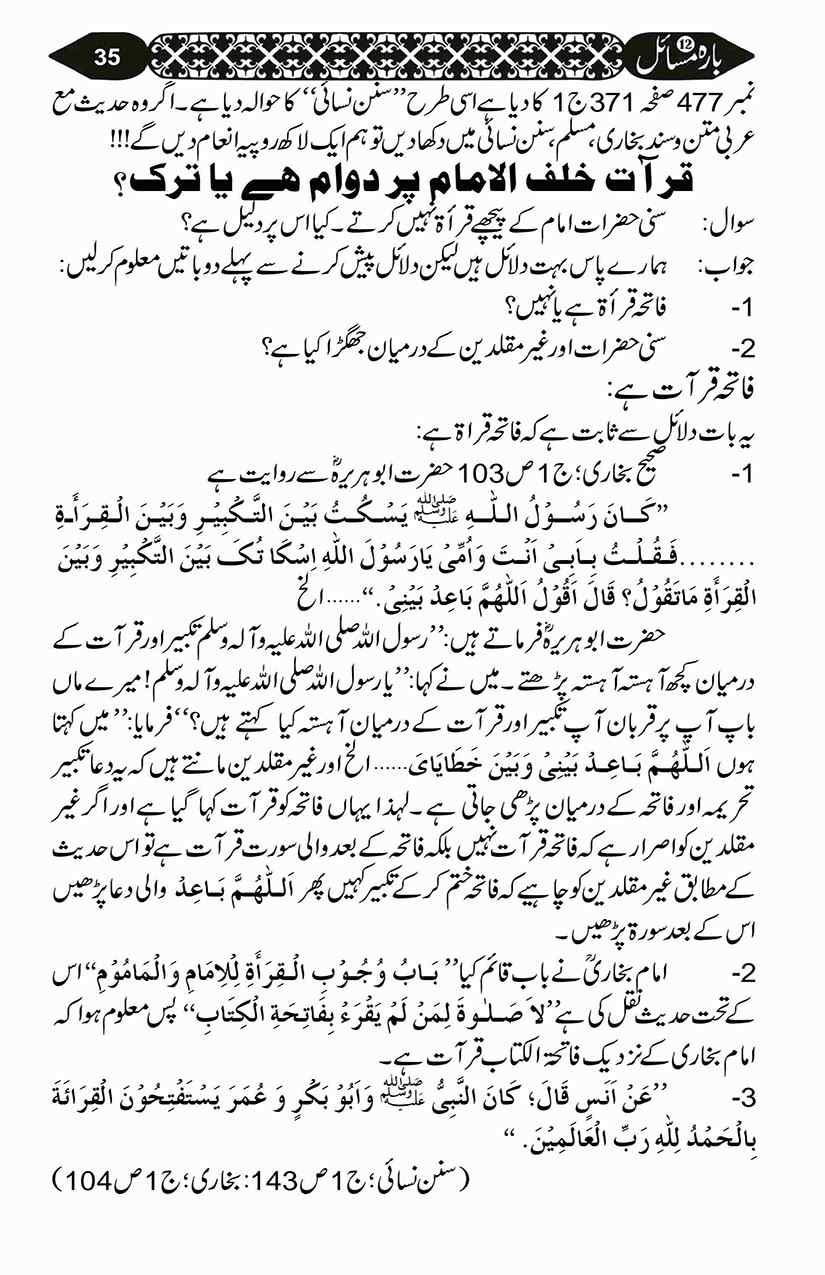 بارہ مسائل ⑫ 35
نمبر 477 صفحہ 371 ج 1 کا دیا ہے اسی طرح ”سنن نسائی“ کا حوالہ دیا ہے۔ اگر وہ حدیث مع
عربی متن و سند بخاری، مسلم، سنن نسائی میں دکھا دیں تو ہم ایک لاکھ روپیہ انعام دیں گے!!!
قرآت خلف الامام پر دوام ھے یا ترک؟
سوال: سنی حضرات امام کے پیچھے قرأۃ نہیں کرتے۔ کیا اس پر دلیل ہے؟
جواب: ہمارے پاس بہت دلائل ہیں لیکن دلائل پیش کرنے سے پہلے دو باتیں معلوم کرلیں:
1- فاتحہ قرأۃ ہے یا نہیں؟
2- سنی حضرات اور غیر مقلدین کے درمیان جھگڑا کیا ہے؟
فاتحہ قرآت ہے:
یہ بات دلائل سے ثابت ہے کہ فاتحہ قراۃ ہے:
1- صحیح بخاری؛ ج 1 ص 103 حضرت ابو ہریرہؓ سے روایت ہے
”کَانَ رَسُوْلُ اللہِ ﷺ یَسْکُتُ بَیْنَ التَّکْبِیْرِ وَبَیْنَ الْقِرَأَۃِ
........فَقُلْتُ بِاَبِیْ اَنْتَ وَاُمِّیْ یَارَسُوْلَ اللہِ اِسْکَا تُکَ بَیْنَ التَّکْبِیْرِ وَبَیْنَ
الْقِرَأَۃِ مَاتَقُوْلُ؟ قَالَ اَقُوْلُ اَللّٰھُمَّ بَاعِدْ بَیْنِیْ.“......الخ
حضرت ابو ہریرہؓ فرماتے ہیں: ”رسول اللہ صلی اللہ علیہ وآلہ وسلم تکبیر اور قرآت کے
درمیان کچھ آہستہ آہستہ پڑھتے۔ میں نے کہا: ”یا رسول اللہ صلی اللہ علیہ وآلہ وسلم! میرے ماں
باپ آپ پر قربان آپ تکبیر اور قرآت کے درمیان آہستہ کیا کہتے ہیں؟“ فرمایا: ”میں کہتا
ہوں اَللّٰھُمَّ بَاعِدْ بَیْنِیْ وَبَیْنَ خَطَایَایَ......الخ اور غیر مقلدین مانتے ہیں کہ یہ دعا تکبیر
تحریمہ اور فاتحہ کے درمیان پڑھی جاتی ہے۔ لہذا یہاں فاتحہ کو قرآت کہا گیا ہے اور اگر غیر
مقلدین کو اصرار ہے کہ فاتحہ قرآت نہیں بلکہ فاتحہ کے بعد والی سورت قرآت ہے تو اس حدیث
کے مطابق غیر مقلدین کو چاہیے کہ فاتحہ ختم کر کے تکبیر کہیں پھر اَللّٰھُمَّ بَاعِدْ والی دعا پڑھیں
اس کے بعد سورۃ پڑھیں۔
2- امام بخاریؒ نے باب قائم کیا ”بَابُ وُجُوْبِ الْقِرَأَۃِ لِلْاِمَامِ وَالْمَامُوْمِ“ اس
کے تحت حدیث نقل کی ہے ”لَا صَلٰوۃَ لِمَنْ لَمْ یَقْرَءْ بِفَاتِحَۃِ الْکِتَابِ“ پس معلوم ہوا کہ
امام بخاری کے نزدیک فاتحۃ الکتاب قرآت ہے۔
3- ”عَنْ اَنَسٍ قَالَ؛ کَانَ النَّبِیُّ ﷺ وَاَبُوْ بَکْرٍ وَ عُمَرَ یَسْتَفْتِحُوْنَ الْقِرَائَۃَ
بِالْحَمْدُ لِلّٰہِ رَبِّ الْعَالَمِیْنَ.“
(سنن نسائی؛ ج 1 ص 143: بخاری؛ ج 1 ص 104)